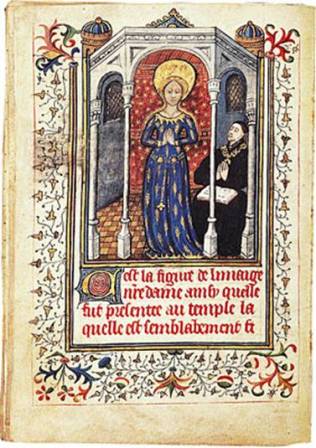 Cest la figure de limaige
nre dame ainsy quelle
fut presentee au temple la
quelle est semblabement fi